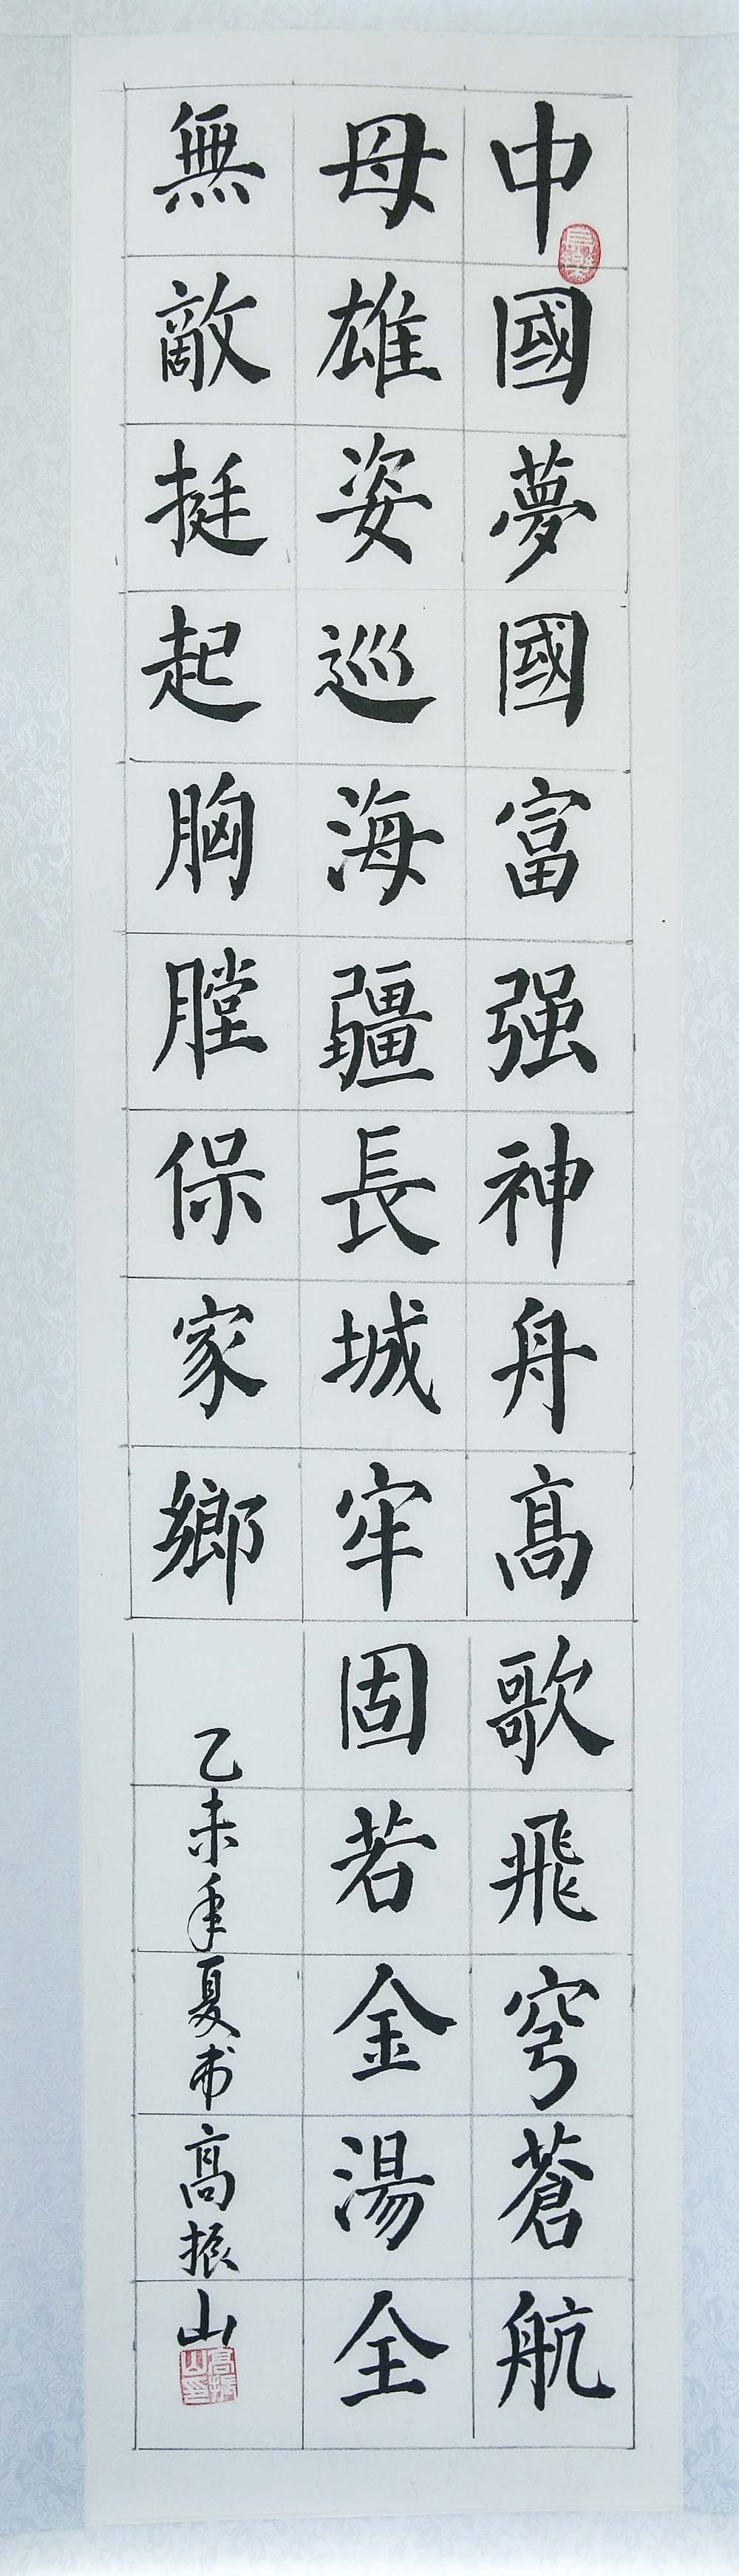 中國夢國富强神舟髙歌飛穹蒼航
母雄姿巡海疆長城牢固若金湯全
無敵挺起胸膛保家鄉
乙未年夏书高振山
長樂
高振山印